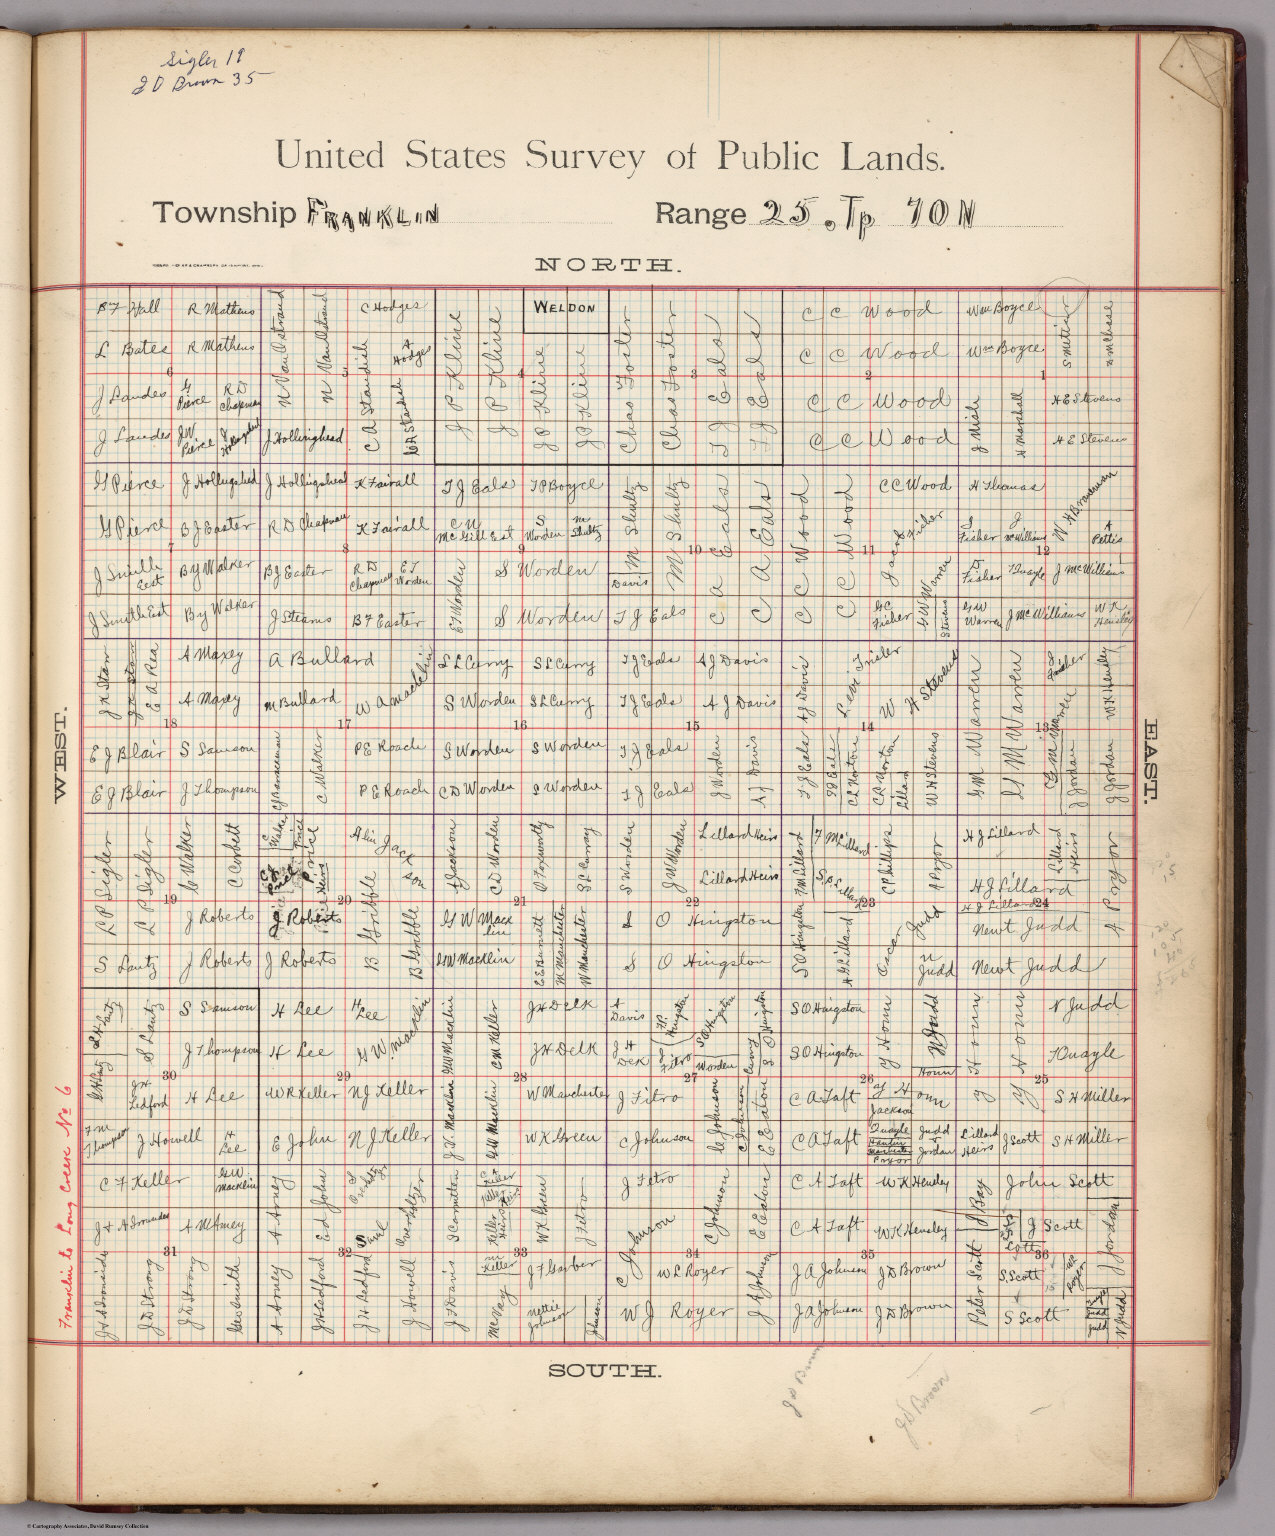 Sigler 19
J D Brown 35
United States Survey of Public Lands.
Township FRANKLIN Range 25. Tp 70 N
NORTH.
WEST.
EAST.
B F Hall R Mathews N VanOstrand N VanOstrand C Hodges J P Kline J P Kline WELDON Chas Foster Chas Foster T J Eals T J Eals C C Wood Wm Boyce
L Bates R Mathews C A Standish A Hodges J P Kline J P Kline C C Wood Wm Boyce
6 5 4 3 2 1
J Landes G Pierce R D Chapman W R Standish C C Wood J Mishi H Marshall H E Stevens
J Landes J W Pierce J Hollingshead J Hollinghead C C Wood H E Stevens
G Pierce J Hollingshed J Hollingshead K Fairall T J Eals T P Boyce M Shultz M Shultz C A Eals C A Eals C C Wood C C Wood C C Wood H Thomas W H Braneman
G Pierce B J Easter R D Chapman K Fairall C N McGill Est S Worden M Shultz Jacob Fisher J Fisher J McWilliams A Pettis
7 8 9 10 11 12
J Smith Est B Y Walker B J Easter R D Chapman E T Worden E T Worden S Worden Davis G W Warren D Fisher T Quayle J McWilliams
J Smith Est B Y Walker J Stearns B F Easter S Worden T J Eals G C Fisher Stevens G W Warren J McWilliams W K Hensley
J H Starr J H Starr E A Rea A Maxey A Bullard W A Macklin S L Curry S L Curry T J Eals A J Davis A J Davis Levi Trisler W H Stevens G M Warren G M Warren J Fisher W K Hensley
A Maxey M Bullard S Worden S L Curry T J Eals A J Davis
18 17 16 15 14 13
E J Blair S Samson C J Branaman C Walker P E Roach S Worden S Worden T J Eals J Worden A J Davis T J Eals T J Eals C L Horton C L Horton Lillard W H Stevens G M Warren J Jordan J Jordan
E J Blair J Thompson P E Roach C D Worden S Worden T J Eals
L P Sigler L P Sigler C Walker C Corbett C Walker Price Price Heirs Alin Jackson A Jackson C D Worden O Foxworthy S L Curray S Worden J W Worden Lillard Heirs F M Lillard F M Lillard C P Phillips A Pryor H J Lillard Lillard Heirs A Pryor
Lillard Heirs S B Lillard H J Lillard
19 20 21 22 23 24
J Roberts J Roberts B Gribble B Gribble G W Macklin E E Burnett M Manchester W Manchester S O Hingston S O Hingston H G Lillard Oscar Judd H J Lillard Newt Judd
S Lautz J Roberts J Roberts G W Macklin S O Hingston N Judd Newt Judd
S H Lautz S Lautz S Samson H Lee H Lee G W Macklin G W Macklin C M Keller J H Delk A Davis F P Hingston S O Hingston S O Hingston S O Hingston Y Honn N Judd Y Honn Y Honn N Judd
J Thompson H Lee J H Delk J H Delk J Fitro Worden Curry S O Hingston Honn T Quayle
30 29 28 27 26 25
S H Lautz J H Ledford H Lee W R Keller N J Keller J V Macklin G W Macklin W Manchester J Fitro C Johnson C Johnson E E Eaton C A Taft Y Honn Jackson S H Miller
F M Thompson J Howell H Lee E John N J Keller W K Green C Johnson C A Taft Quayle Hamlin Manchester Pryor Judd & Jordan Lillard Heirs J Scott S H Miller
C F Keller G W Macklin A Arney Ed John Overholtzer J Cormitten Keller Keller Heirs W K Green J Fitro J Fitro C Johnson E Eaton C A Taft W K Hensley J Bay John Scott J Jordan
J & A Ironsides A M Arney C Johnson C A Taft W K Hensley J Scott
31 32 33 34 35 36
J & A Ironside J D Strong J D Strong Geo Smith A Arney J H Ledford J H Ledford J Howell J T Davis M Keller McVay J F Garber W L Royer J A Johnson J A Johnson J D Brown Peter Scott S Scott W J Royer
Nettie Johnson Johnson W J Royer J A Johnson J D Brown S Scott Quayle Judd Judd N Judd
Franklin to Long Creek No 6
SOUTH.
J D Brown
J D Brown
© Cartography Associates, David Rumsey Collection